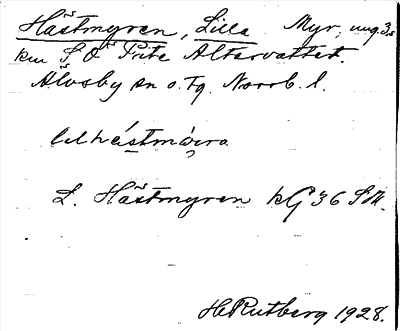 Hästmyren, Lilla Myr, ung. 3,5
km S O Pite Altervattnet.
Älvsby sn o. tg. Norrb. l.
L. Hästmyren kG 36 SM.
H Rutberg 1928.